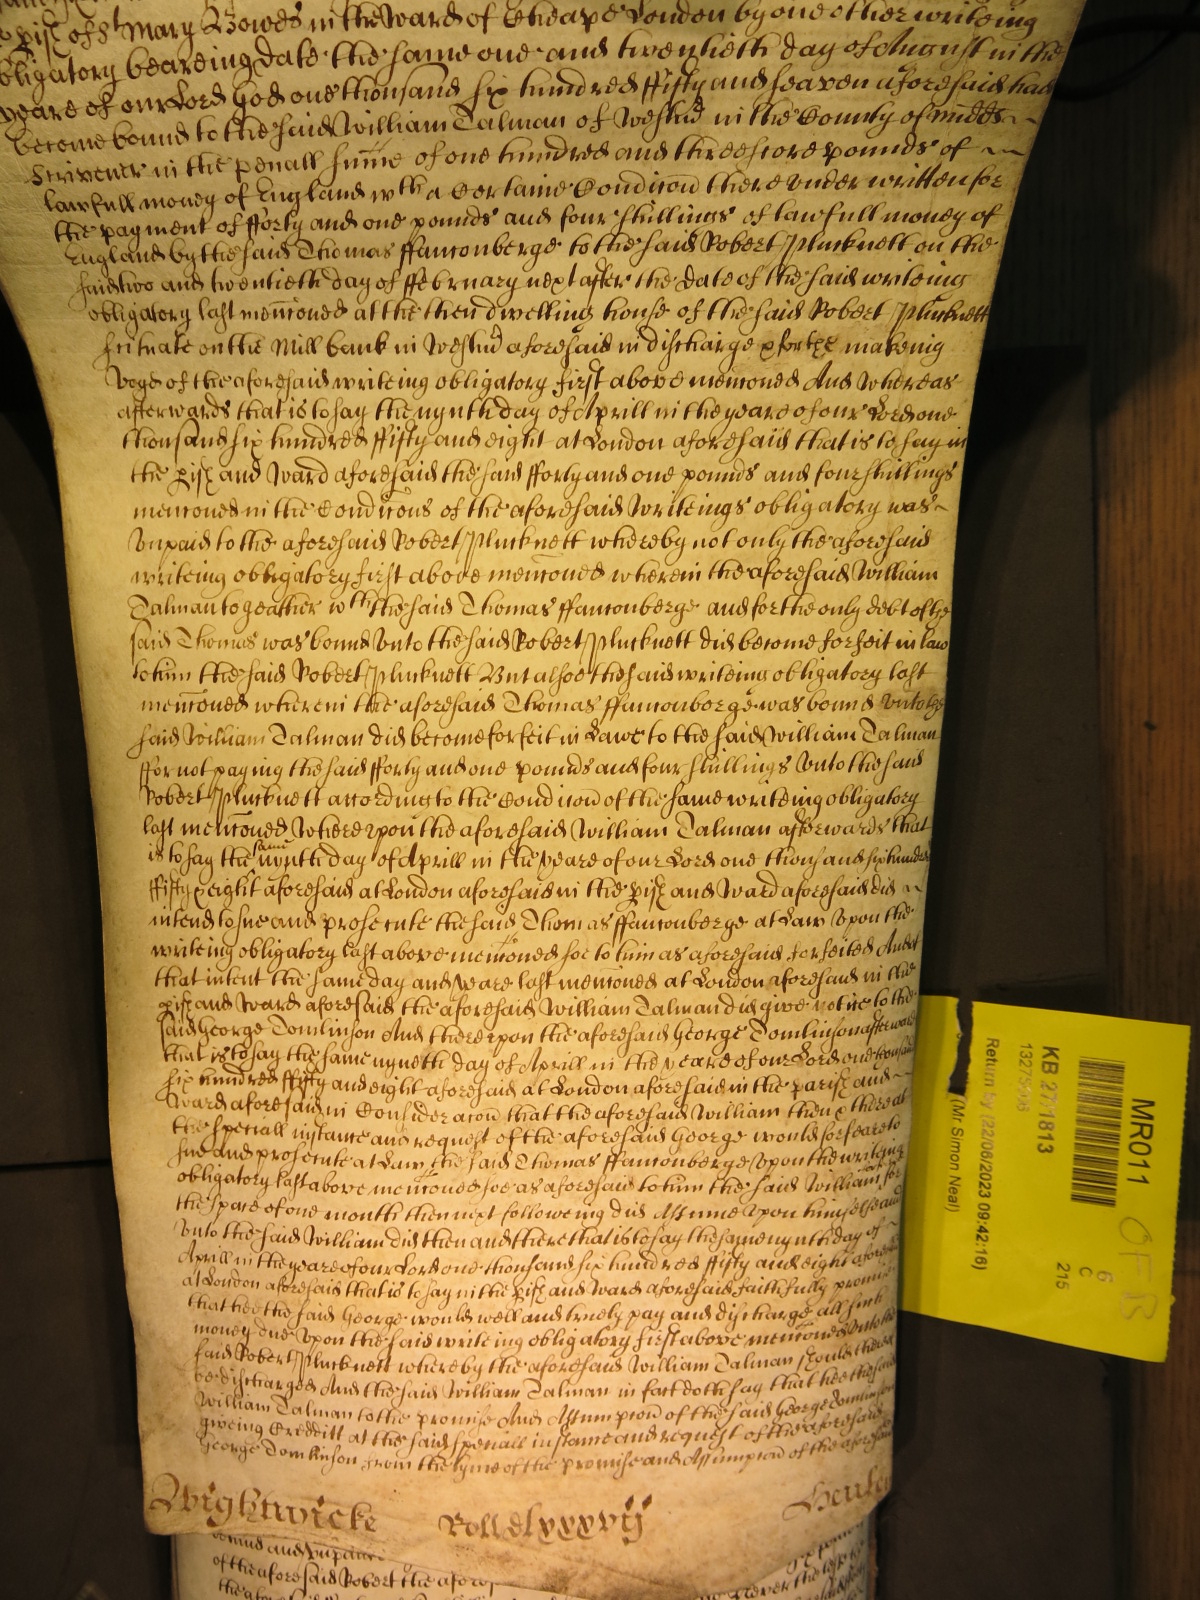 pish of St Mary Bowes in the Ward of Cheape London by one other writeing
obligatory beareing date the same one and twentieth day of August in the
yeare of our Lord God one thousand six hundred ffifty and seaven aforesaid had
become bound to the said William Talman of Westmr in the County of Midds
Scrivener in the penall sume of one hundred and threescore pounds of
lawfull money of England wth a Certaine Condicon there under written for
the payment of fforty and one pounds and four shillings of lawfull money of
England by the said Thomas ffauconberge to the said Robert Plucknett on the
said two and twentieth day of ffebruary next after the date of the said writeing
obligatory last menconed at the then dwelling house of the said Robert Plucknett
scituate on the Mill bank in Westmr aforesaid in discharge makeing
voyd of the aforesaid writeing obligatory first above menconed And Whereas
afterwards that is to say the nynth day of Aprill in the yeare of our Lord one
thousand six hundred ffifty and eight at London aforesaid that is to say in
the pish and Ward aforesaid the said fforty and one pounds and four shillings
menconed in the Condicons of the aforesaid writeings obligatory was
unpaid to the aforesaid Robert Plucknett whereby not only the aforesaid
writeing obligatory first above menconed wherein the aforesaid William
Talman togeather wth the said Thomas ffauconberge and for the only debt of the
said Thomas was bound unto the said Robert Plucknett did become forfeit in law
to him the said Robert Plucknett But alsoe the said writeing obligatory last
menconed wherein the aforesaid Thomas ffauconberge was bound unto the
said William Talman did become forfeit in Lawe to the said William Talman
ffor not paying the said fforty and one pounds and four shillings unto the said
Robert Plucknett according to the Condicon of the same writeing obligatory
last menconed Whereupon the aforesaid William Talman afterwards that
is to say the same nynth day of Aprill in the yeare of our Lord one thousand six hundred
ffifty & eight aforesaid at London aforesaid in the pish and Ward aforesaid did
intend to sue and prosecute the said Thomas ffauconberge at Law upon the
writeing obligatory last above menconed soe to him as aforesaid forfeited And to
that intent the same day and yeare last menconed at London aforesaid in the
pish and Ward aforesaid the aforesaid William Talman did give notice to the
said George Tomlinson And thereupon the aforesaid George Tomlinson afterwards
that is to say the same nyneth day of Aprill in the yeare of our Lord one thousand
six hundred ffifty and eight aforesaid at London aforesaid in the parish and
Ward aforesaid in Consideracon that the aforesaid William then & there at
the speciall instance and request of the aforesaid George would forbeare to
sue and prosecute at Law the said Thomas ffauconberge upon the writeing
obligatory last above menconed soe as aforesaid to him the said William for
the space of one month then next following did Assume upon himselfe and
unto the said William did then and there that is to say the same nynth day of
Aprill in the yeare of our Lord one thousand six hundred ffifty and eight aforesaid
at London aforesaid that is to say in the pish and Ward aforesaid faithfully promise
that hee the said George would well and truely pay and discharge all such
money due upon the said writeing obligatory first above menconed unto the
said Robert Plucknett whereby the aforesaid William Talman should thereof
be discharged And the said William Talman in fact doth say that hee the said
William Talman to the promise And Assumpcon of the said George Tomlinson
giveing Creditt at the said speciall instance and request of the aforesaid
George Tomlinson from the tyme of the promise and Assumpcon of the aforesaid
Wightwicke Roll dlxxxvij
of the aforesaid Robert the afore
MR011
KB 27/1813
Return by (22/06/2023 09:42:16)
(Mr Simon Neal)
6
C
215
OF B